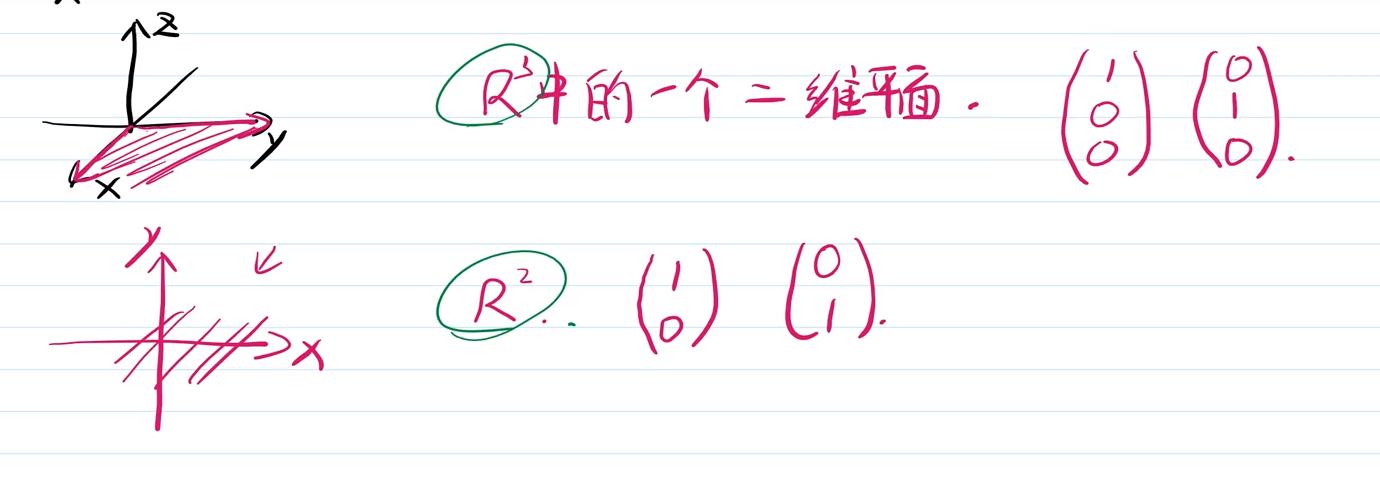 z
R³中的一个二维平面. (1 0 0) (0 1 0).
y
x
y
R². (1 0) (0 1).
x